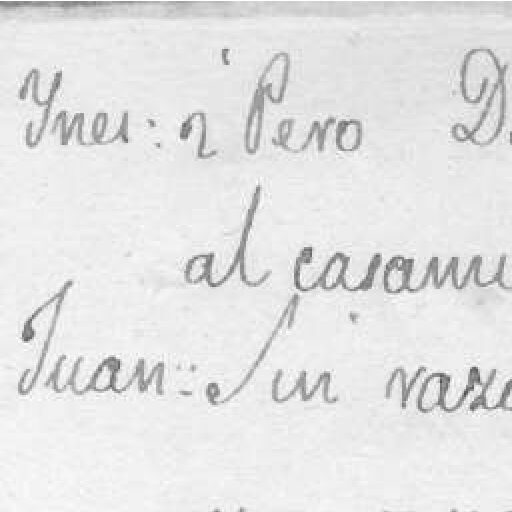 Ynes: i Pero D.
al casami
Juan: Sin razo